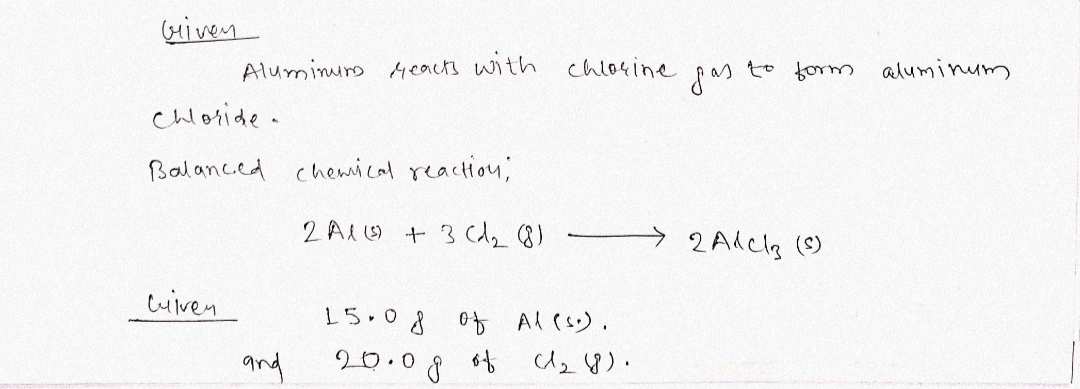 Given
Aluminum reacts with chlorine gas to form aluminum
chloride.
Balanced chemical reaction;
2 Al (s) + 3 Cl2 (g) ⟶ 2 AlCl3 (s)
Given 15.0 g of Al (s).
and 20.0 g of Cl2 (g).